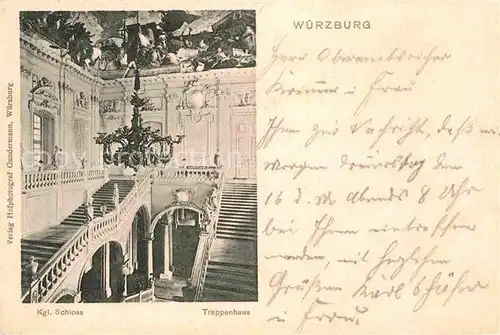 WÜRZBURG
Verlag Hofphotograf Gundermann, Würzburg.
Kgl. Schloss
Treppenhaus
Herrn Oberamtsrichter
u Frau
Ihnen zur Nachricht, daß wir
Morgen Dienstag den
16 d. M Abends 8 Uhr
bei Ihnen eintreffen
werden, mit herzlichen
Grüßen Karl Schäfer
u Frau.